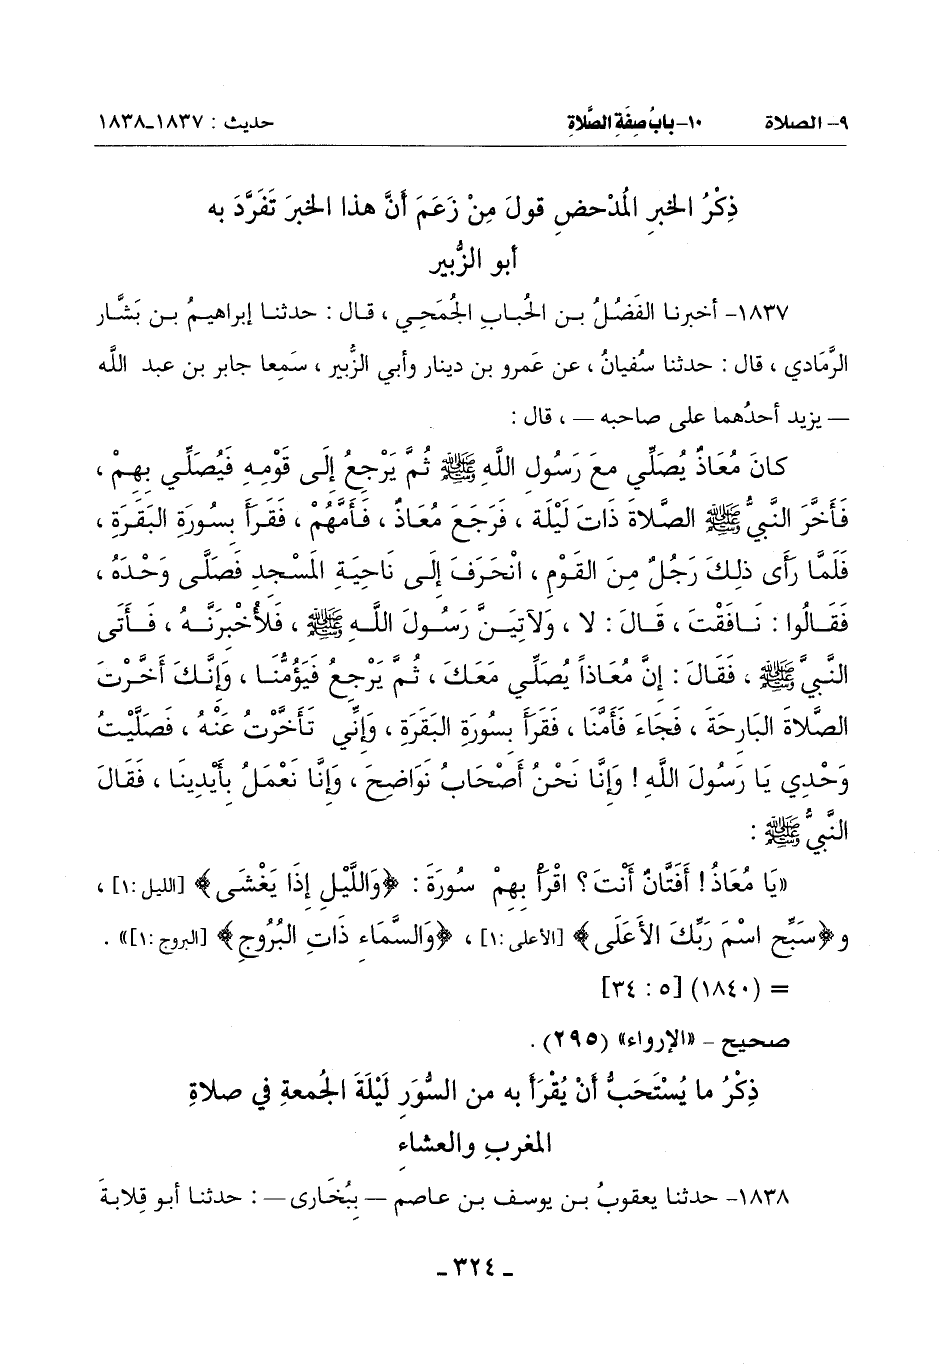 ٩- الصلاة ١٠- بابُ صِفَةِ الصَّلاةِ حديث : ١٨٣٧-١٨٣٨
ذِكْرُ الخبرِ المُدْحضِ قولَ مِنْ زَعَمَ أَنَّ هذا الخبرَ تَفَرَّدَ به
أبو الزُّبير
١٨٣٧- أخبرنا الفَضْلُ بن الحُبابِ الجُمَحِي ، قال : حدثنا إبراهيمُ بن بَشَّار
الرَّمَادي ، قال : حدثنا سُفيانُ ، عن عَمرو بن دينار وأبي الزُّبير ، سَمِعا جابر بن عبد الله
— يزيد أحدُهما على صاحبه — ، قال :
كانَ مُعَاذٌ يُصَلِّي معَ رَسُولِ اللَّهِ ﷺ ثُمَّ يَرْجِعُ إِلَى قَوْمِهِ فَيُصَلِّي بِهِمْ ،
فَأَخَّرَ النَّبِيُّ ﷺ الصَّلاةَ ذَاتَ لَيْلَة ، فَرَجَعَ مُعَاذٌ ، فَأَمَّهُمْ ، فَقَرَأَ بِسُورَةِ البَقَرَةِ ،
فَلَمَّا رَأَى ذلِكَ رَجُلٌ مِنَ القَوْمِ ، انْحَرَفَ إِلَى نَاحِيَةِ المَسْجِدِ فَصَلَّى وَحْدَهُ ،
فَقَالُوا : نَافَقْتَ ، قَالَ : لا ، وَلآتِيَنَّ رَسُولَ اللَّهِ ﷺ ، فَلأُخْبِرَنَّهُ ، فَأَتَى
النَّبِيَّ ﷺ ، فَقَالَ : إِنَّ مُعَاذاً يُصَلِّي مَعَكَ ، ثُمَّ يَرْجِعُ فَيَؤُمُّنَا ، وَإِنَّكَ أَخَّرْتَ
الصَّلاةَ البَارِحَةَ ، فَجَاءَ فَأَمَّنَا ، فَقَرَأَ بِسُورَةِ البَقَرَةِ ، وَإِنِّي تَأَخَّرْتُ عَنْهُ ، فَصَلَّيْتُ
وَحْدِي يَا رَسُولَ اللَّهِ ! وَإِنَّا نَحْنُ أَصْحَابُ نَوَاضِحَ ، وَإِنَّا نَعْمَلُ بِأَيْدِينَا ، فَقَالَ
النَّبِيُّ ﷺ :
«يَا مُعَاذُ ! أَفَتَّانٌ أَنْتَ ؟ اقْرَأْ بِهِمْ سُورَةَ : ﴿وَاللَّيْلِ إِذَا يَغْشَى﴾ [الليل :١] ،
و﴿سَبِّحِ اسْمَ رَبِّكَ الأَعْلَى﴾ [الأعلى :١] ، ﴿وَالسَّمَاءِ ذَاتِ البُرُوجِ﴾ [البروج :١]» .
= (١٨٤٠) [٥ : ٣٤]
صحيح - «الإرواء» (٢٩٥) .
ذِكْرُ ما يُسْتَحَبُّ أَنْ يُقْرَأَ به من السُّوَرِ لَيْلَةَ الجُمعةِ في صلاةِ
المغربِ والعشاءِ
١٨٣٨- حدثنا يعقوبُ بن يوسف بن عاصم — بِبُخَارى — : حدثنا أبو قِلابةَ
- ٣٢٤ -